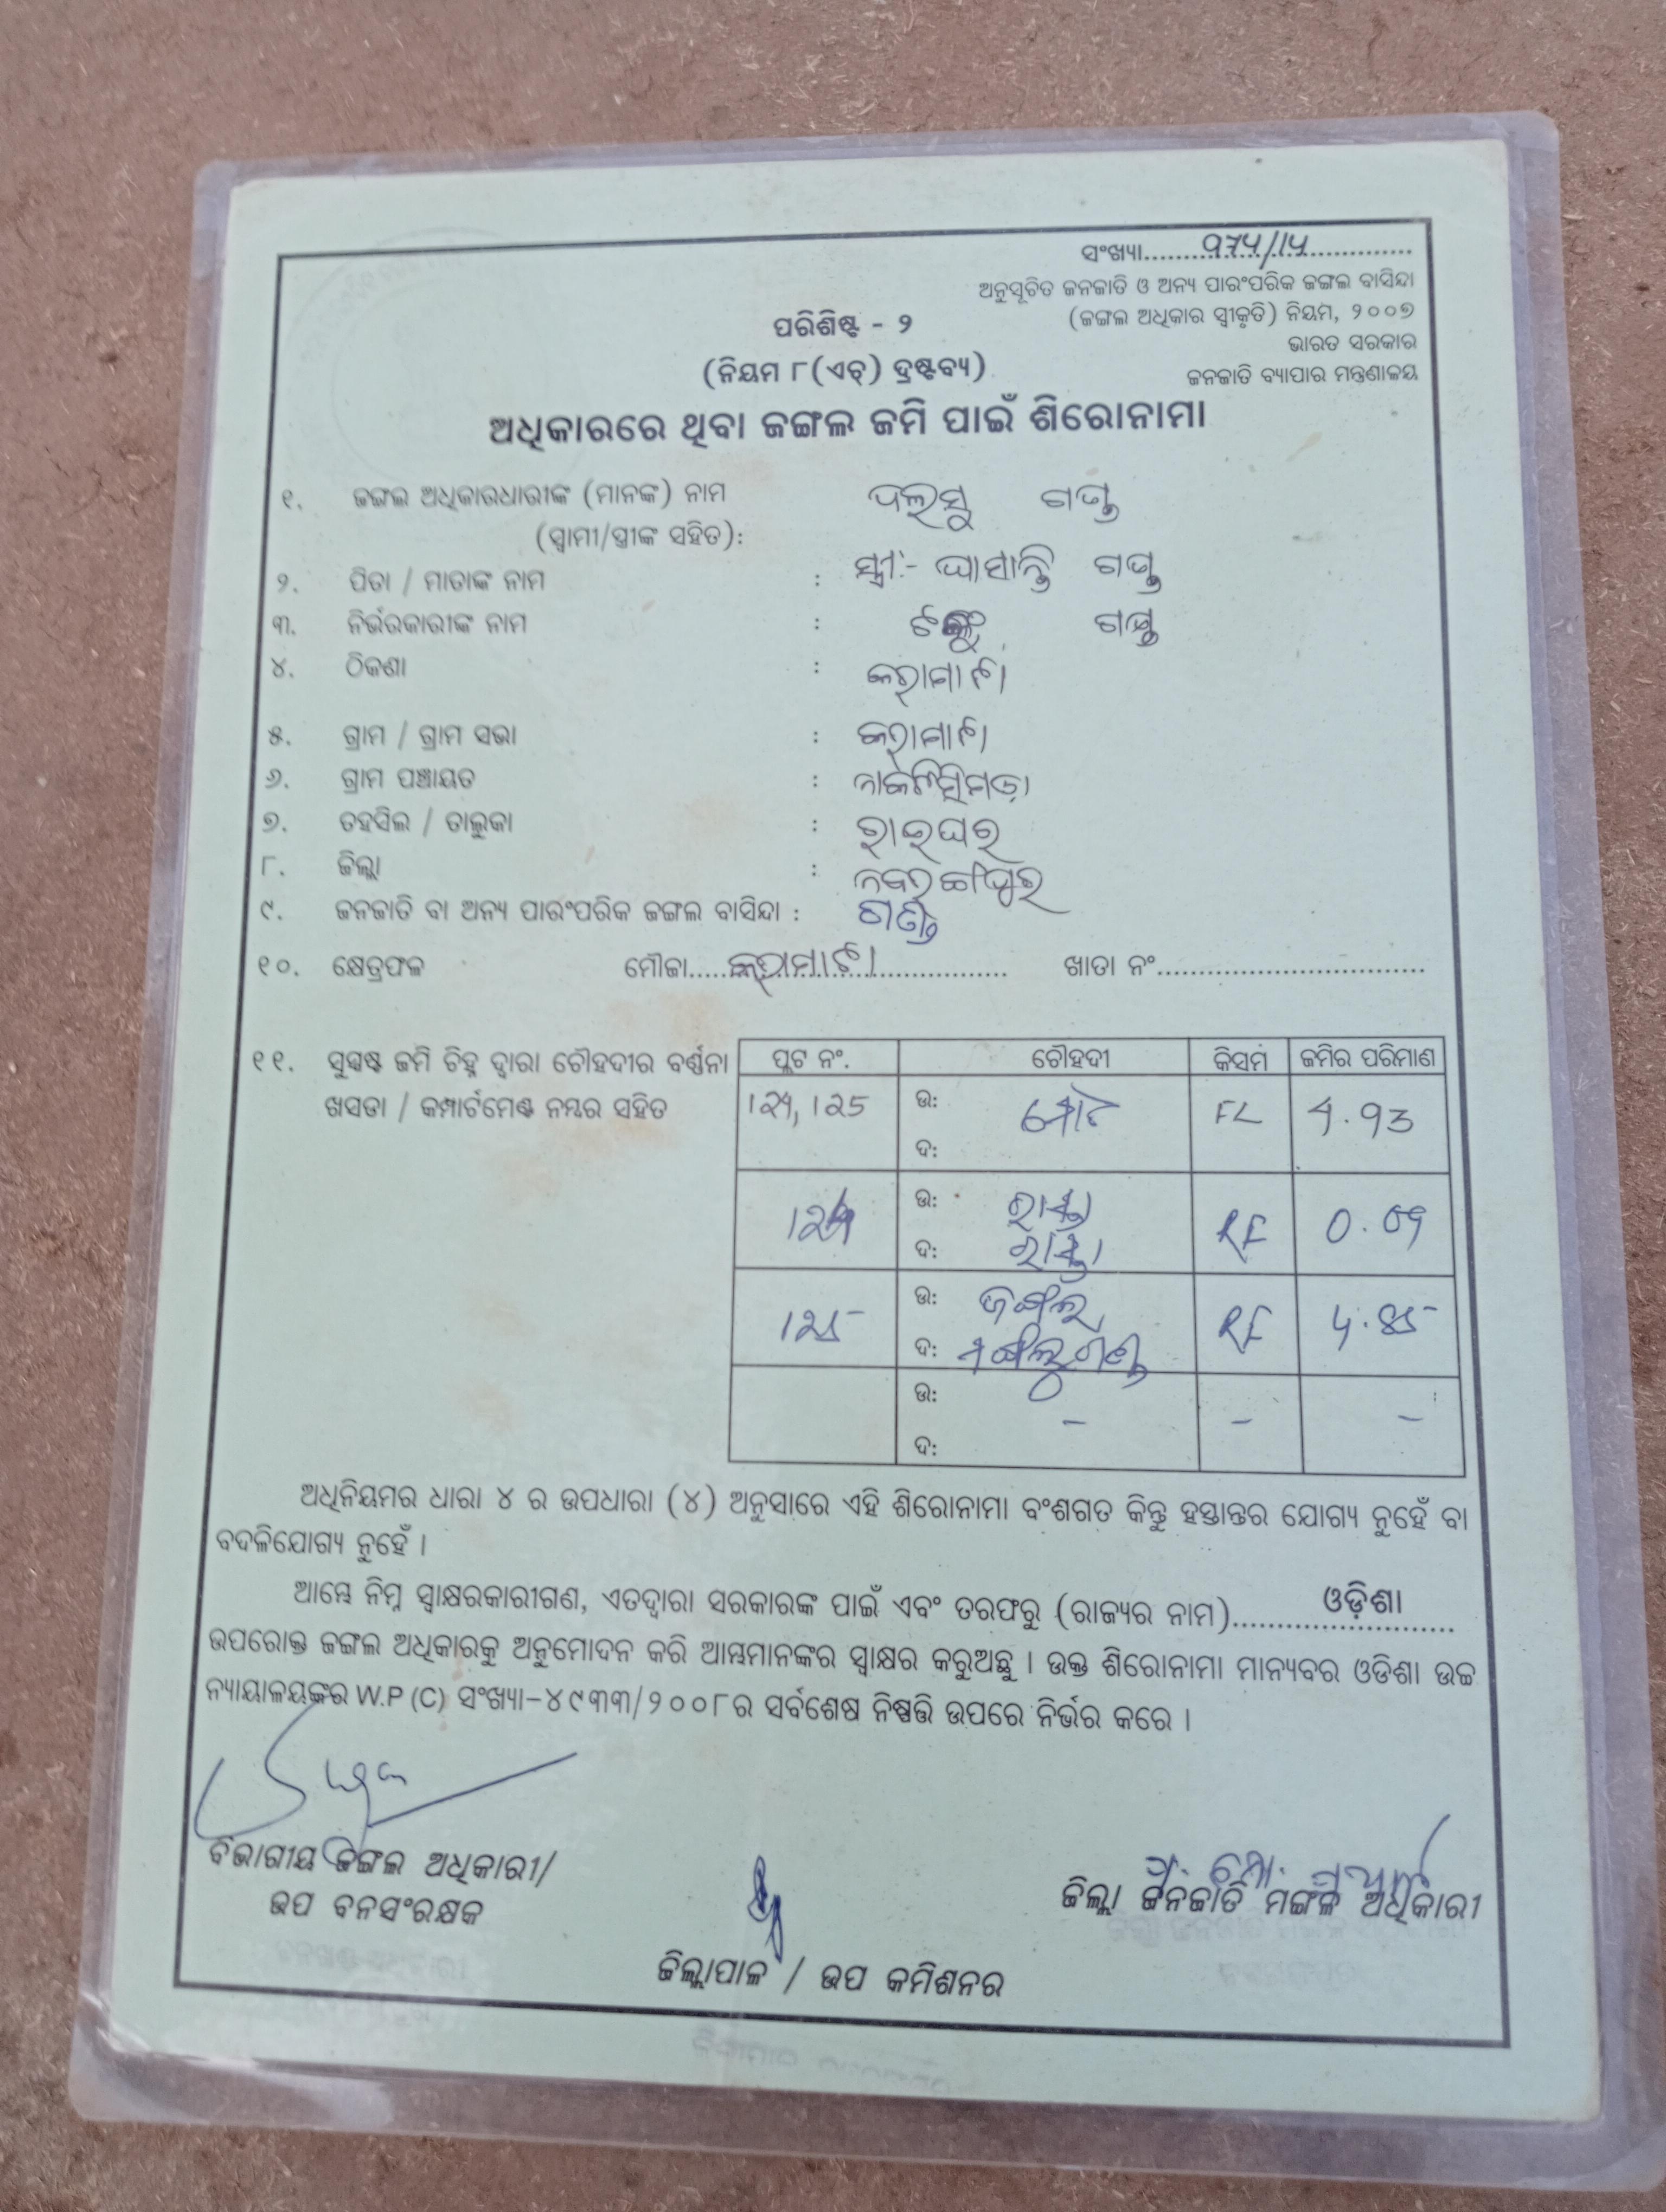 ସଂଖ୍ୟା..............................
ଅନୁସୂଚିତ ଜନଜାତି ଓ ଅନ୍ୟ ପାରଂପରିକ ଜଙ୍ଗଲ ବାସିନ୍ଦା
(ଜଙ୍ଗଲ ଅଧିକାର ସ୍ୱୀକୃତି) ନିୟମ, ୨୦୦୭
ଭାରତ ସରକାର
ଜନଜାତି ବ୍ୟାପାର ମନ୍ତ୍ରଣାଳୟ
ପରିଶିଷ୍ଟ - ୨
(ନିୟମ ୮(ଏଚ୍) ଦ୍ରଷ୍ଟବ୍ୟ)
ଅଧିକାରରେ ଥିବା ଜଙ୍ଗଲ ଜମି ପାଇଁ ଶିରୋନାମା
୧. ଜଙ୍ଗଲ ଅଧିକାରଧାରୀଙ୍କ (ମାନଙ୍କ) ନାମ
(ସ୍ୱାମୀ/ସ୍ତ୍ରୀଙ୍କ ସହିତ):
୨. ପିତା / ମାତାଙ୍କ ନାମ : ସ୍ତ୍ରୀ:-
୩. ନିର୍ଭରକାରୀଙ୍କ ନାମ :
୪. ଠିକଣା : କରାମାଟୀ
୫. ଗ୍ରାମ / ଗ୍ରାମ ସଭା : କରାମାଟୀ
୬. ଗ୍ରାମ ପଞ୍ଚାୟତ :
୭. ତହସିଲ / ତାଲୁକା : ରାଇଘର
୮. ଜିଲ୍ଲା : ନବରଙ୍ଗପୁର
୯. ଜନଜାତି ବା ଅନ୍ୟ ପାରଂପରିକ ଜଙ୍ଗଲ ବାସିନ୍ଦା : ଗଣ୍ଡ
୧୦. କ୍ଷେତ୍ରଫଳ ମୌଜା.....କରାମାଟୀ............... ଖାତା ନଂ..............................
୧୧. ସୁସ୍ପଷ୍ଟ ଜମି ଚିହ୍ନ ଦ୍ୱାରା ଚୌହଦୀର ବର୍ଣ୍ଣନା
ଖସଡା / କମ୍ପାର୍ଟମେଣ୍ଟ ନମ୍ବର ସହିତ
ପ୍ଲଟ ନଂ. ଚୌହଦୀ କିସମ ଜମିର ପରିମାଣ
125 ଉ: FL
ଦ:
ଉ: ରାସ୍ତା RF
ଦ: ରାସ୍ତା
125 ଉ: ଜଙ୍ଗଲ RF
ଦ:
ଉ: - - -
ଦ:
ଅଧିନିୟମର ଧାରା ୪ ର ଉପଧାରା (୪) ଅନୁସାରେ ଏହି ଶିରୋନାମା ବଂଶଗତ କିନ୍ତୁ ହସ୍ତାନ୍ତର ଯୋଗ୍ୟ ନୁହେଁ ବା
ବଦଳିଯୋଗ୍ୟ ନୁହେଁ ।
ଆମ୍ଭେ ନିମ୍ନ ସ୍ୱାକ୍ଷରକାରୀଗଣ, ଏତଦ୍ୱାରା ସରକାରଙ୍କ ପାଇଁ ଏବଂ ତରଫରୁ (ରାଜ୍ୟର ନାମ)..........ଓଡ଼ିଶା..........
ଉପରୋକ୍ତ ଜଙ୍ଗଲ ଅଧିକାରକୁ ଅନୁମୋଦନ କରି ଆମ୍ଭମାନଙ୍କର ସ୍ୱାକ୍ଷର କରୁଅଛୁ । ଉକ୍ତ ଶିରୋନାମା ମାନ୍ୟବର ଓଡିଶା ଉଚ୍ଚ
ନ୍ୟାୟାଳୟଙ୍କର W.P (C) ସଂଖ୍ୟା-୪୯୩୩/୨୦୦୮ର ସର୍ବଶେଷ ନିଷ୍ପତ୍ତି ଉପରେ ନିର୍ଭର କରେ ।
ବିଭାଗୀୟ ଜଙ୍ଗଲ ଅଧିକାରୀ/
ଉପ ବନସଂରକ୍ଷକ
ଜିଲ୍ଲା ଜନଜାତି ମଙ୍ଗଳ ଅଧିକାରୀ
ଜିଲ୍ଲାପାଳ / ଉପ କମିଶନର